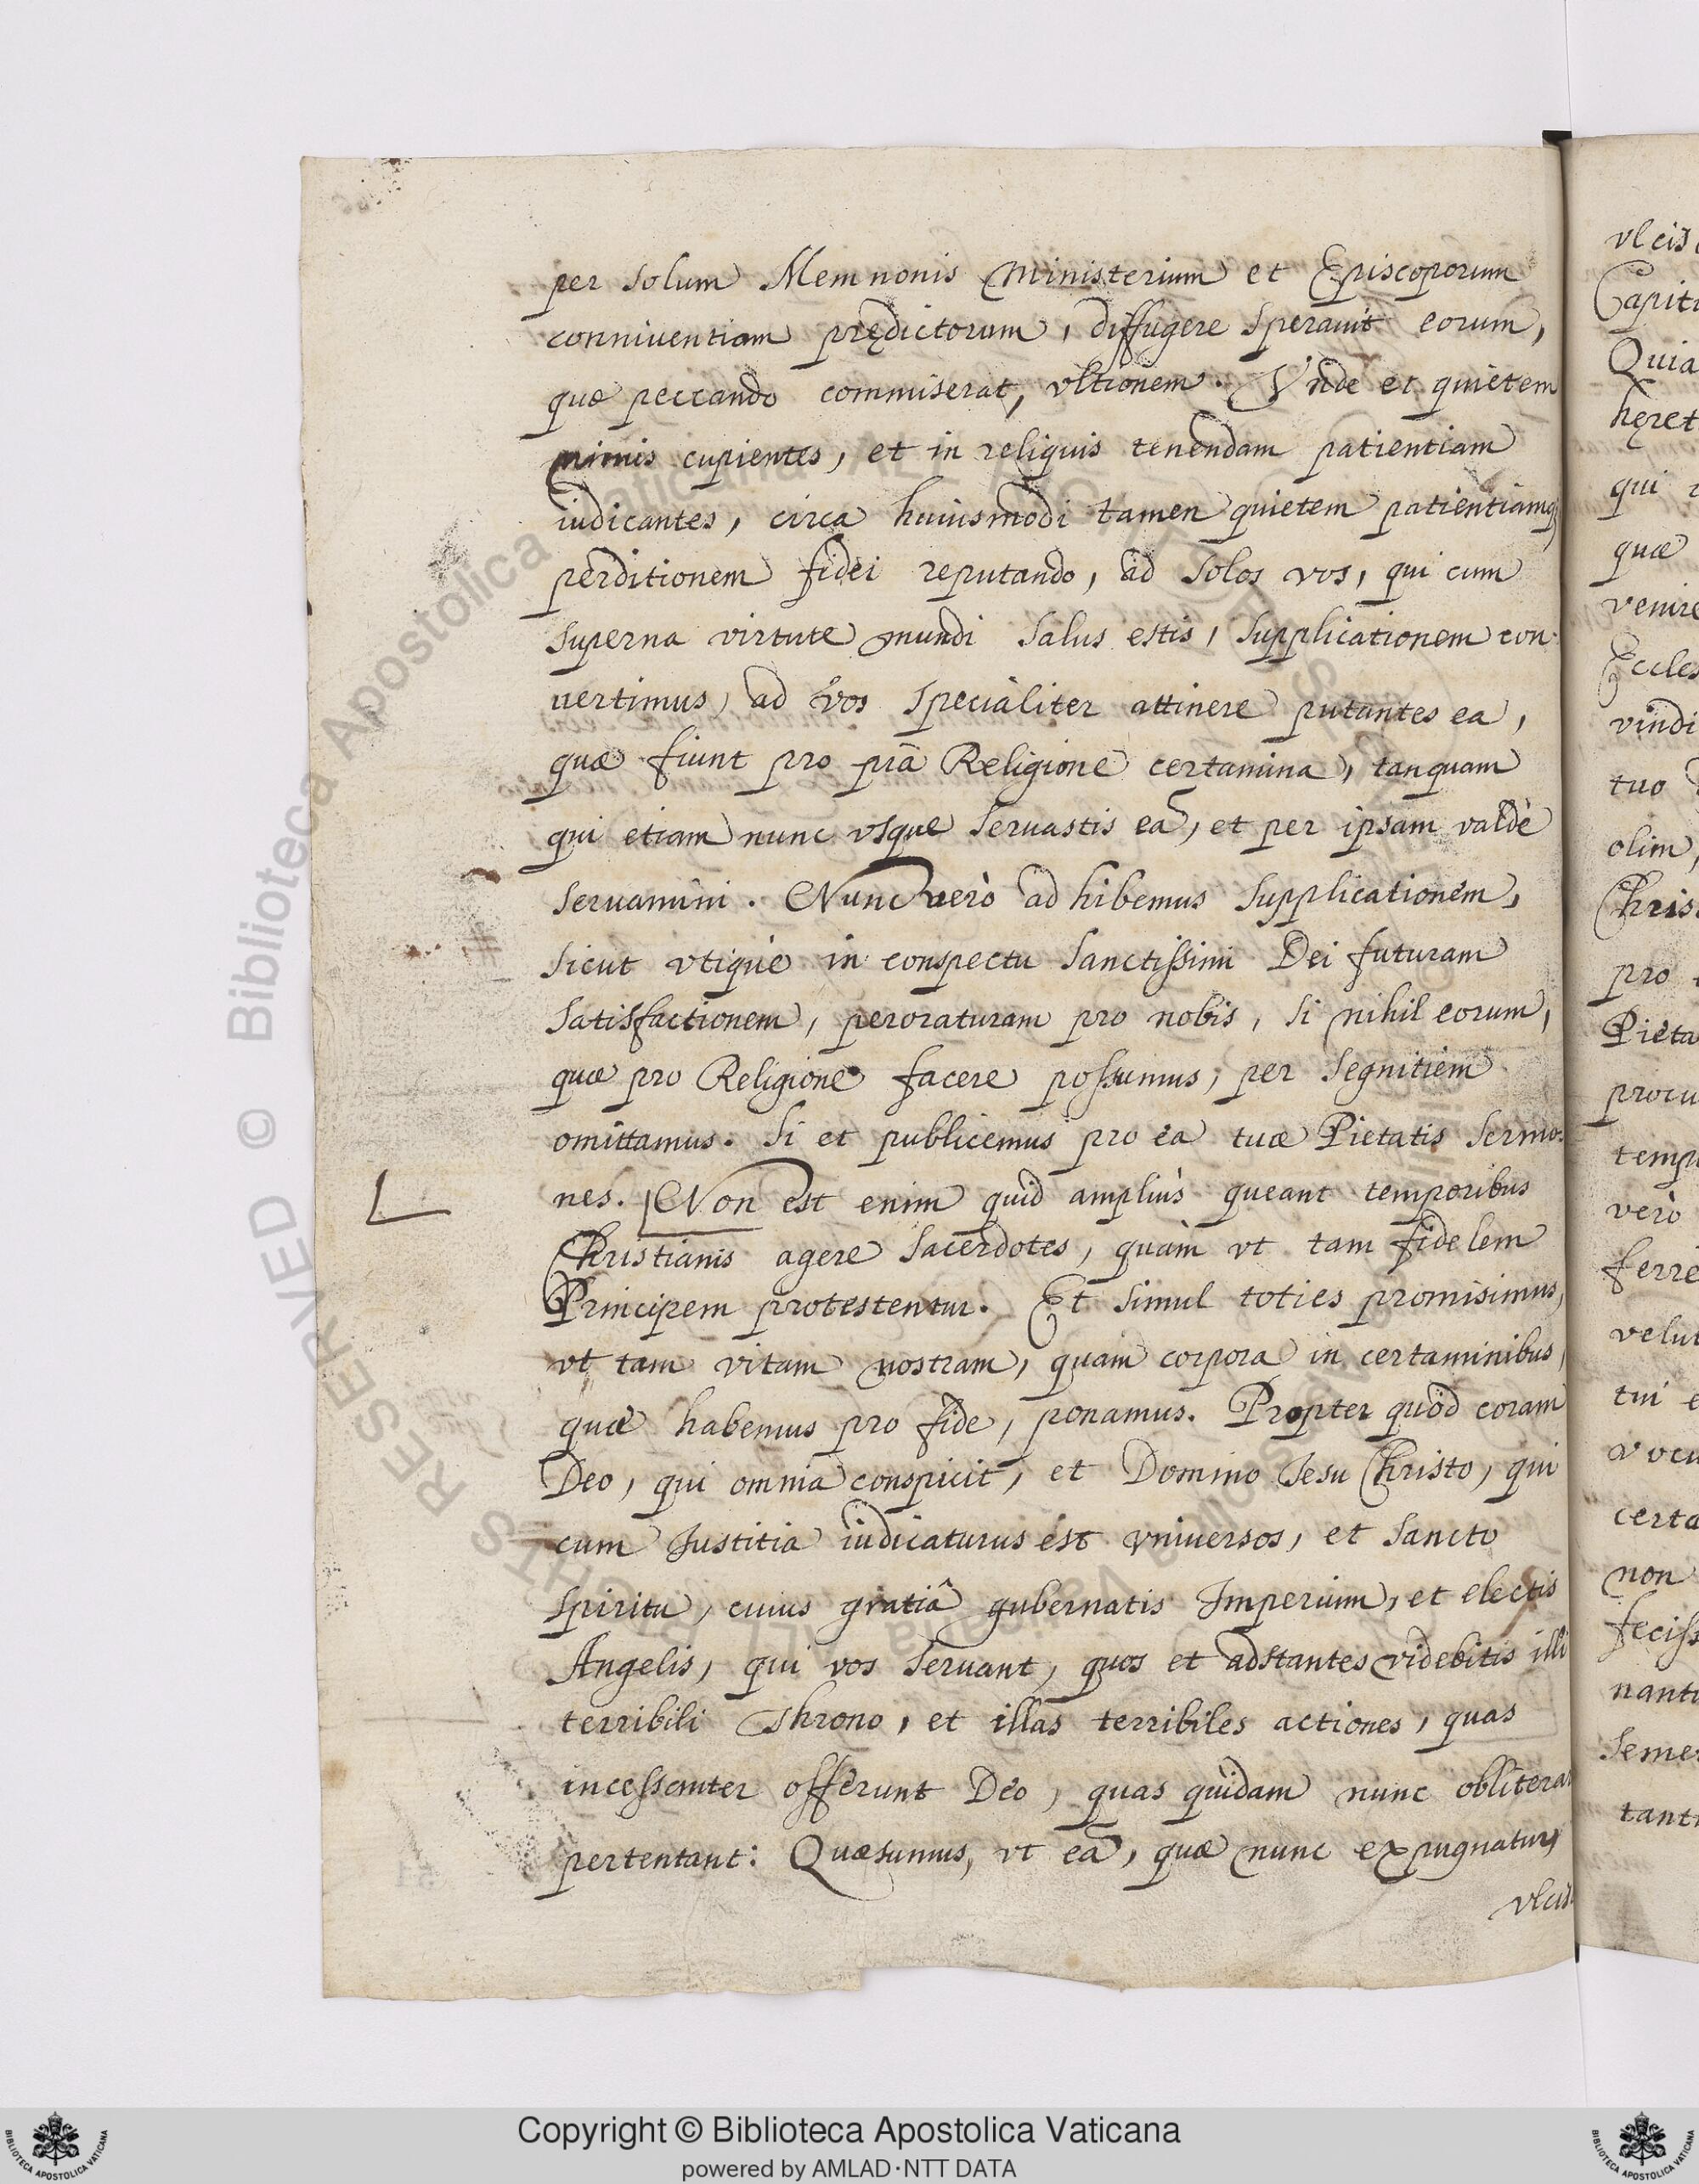 per solum Memnonis ministerium et Episcoporum
conniuentiam prędictorum, diffugere sperauit eorum,
quæ peccando commiserat, vltionem. Vnde et quietem
nimis cupientes, et in reliquis tenendam patientiam
iudicantes, circa huiusmodi tamen quietem patientiamq;
perditionem fidei reputando, ad solos vos, qui cum
superna virtute mundi salus estis, supplicationem con-
uertimus, ad vos speciàliter attinere putantes ea,
quæ fiunt pro piâ Religione certamina, tanquam
qui etiam nunc vsque seruastis ea, et per ipsam valdè
seruamini. Nunc verò adhibemus supplicationem,
sicut vtiquè in conspectu sanctissimi Dei futuram
satisfactionem, peroraturam pro nobis, si nihil eorum,
quæ pro Religione facere possumus, per segnitiem
omittamus. Si et publicemus pro ea tuæ Pietatis sermo-
nes. Non est enim quid ampliùs queant temporibus
Christianis agere Sacerdotes, quàm vt tam fidelem
Principem protestentur. Et simul toties promisimus,
vt tam vitam nostram, quàm corpora in certaminibus,
quæ habemus pro fide, ponamus. Propter quod coram
Deo, qui omnia conspicit, et Domino Jesu Christo, qui
cum Justitia iudicaturus est vniuersos, et sancto
spiritu, cuius gratiâ gubernatis Imperium, et electis
Angelis, qui vos seruant, quos et adstantes videbitis illi
terribili Throno, et illas terribiles actiones, quas
incessanter offerunt Deo, quas quidam nunc oblitera
pertentant: Quæsumus, vt ea, quæ nunc expugnatur,
vlcis
vlcis
Capitu
Quia
hęret
qui
quæ
venire
Eccles
vindi
tuo
olim,
Chris
pro
Pieta
procu
temp
verò
ferre
velut
tui e
certa
non
feciss
nantu
semet
tant
© Biblioteca Apostolica Vaticana ALL RIGHTS RESERVED
Copyright © Biblioteca Apostolica Vaticana
powered by AMLAD·NTT DATA
BIBLIOTECA APOSTOLICA VATICANA
BIBLIOTECA APOSTOLICA VATICANA